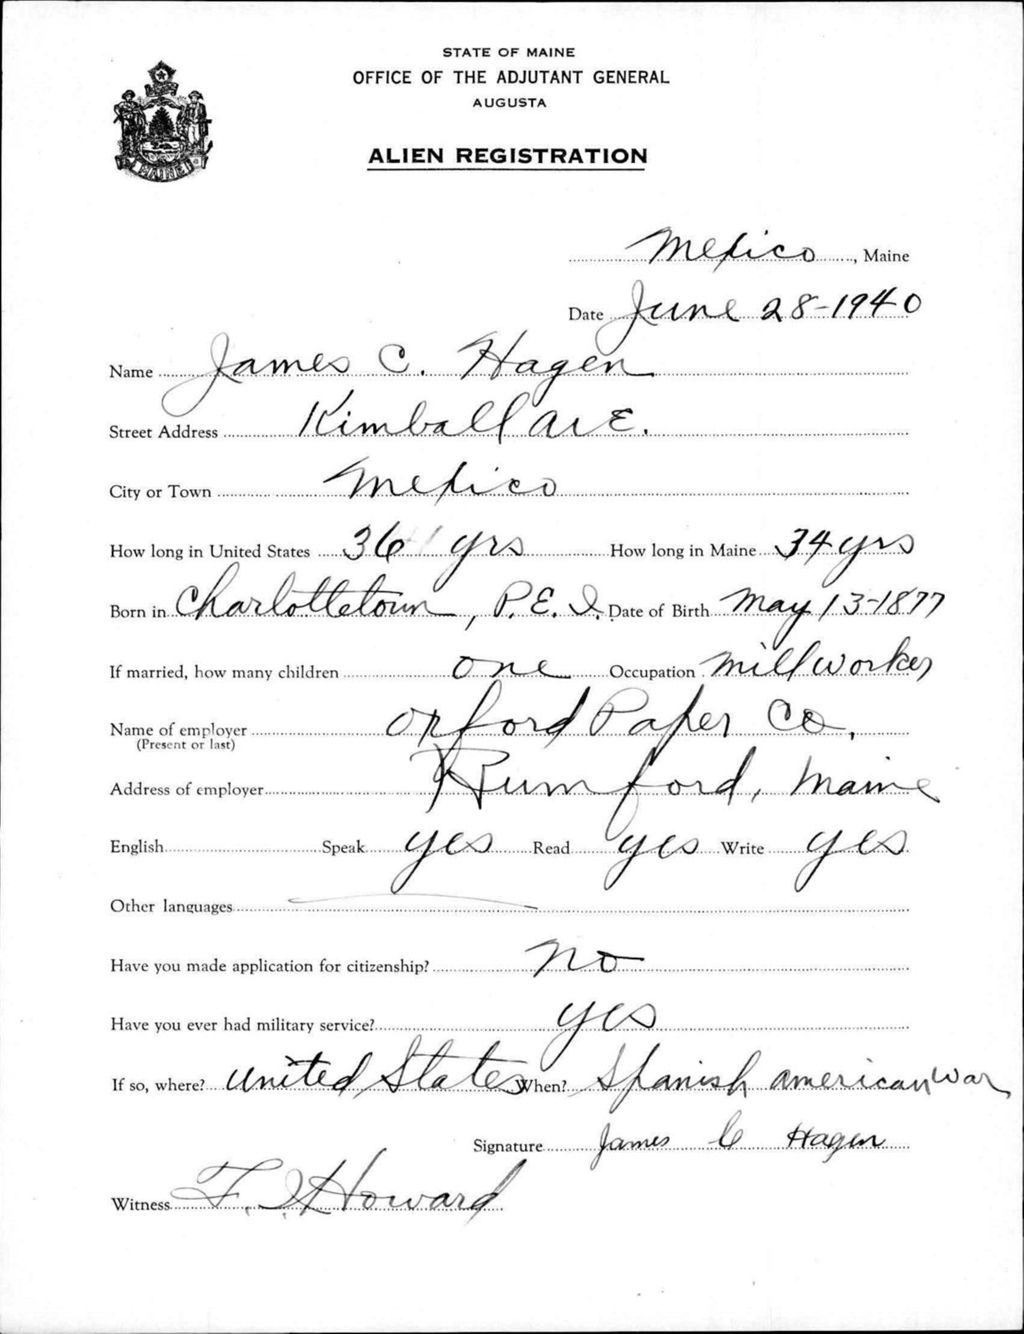 STATE OF MAINE
OFFICE OF THE ADJUTANT GENERAL
AUGUSTA
ALIEN REGISTRATION
MAINE
Mexico, Maine
Date June 28-1940
Name James C. Hagen
Street Address Kimball Ave.
City or Town Mexico
How long in United States 36 yrs How long in Maine 34 yrs
Born in Charlottetown, P.E.I. Date of Birth May 13-1877
If married, how many children one Occupation millworker
Name of employer Oxford Paper Co.
(Present or last)
Address of employer Rumford, Maine
English Speak yes Read yes Write yes
Other languages
Have you made application for citizenship? no
Have you ever had military service? yes
If so, where? United States When? Spanish american war
Signature James C Hagen
Witness F. Howard